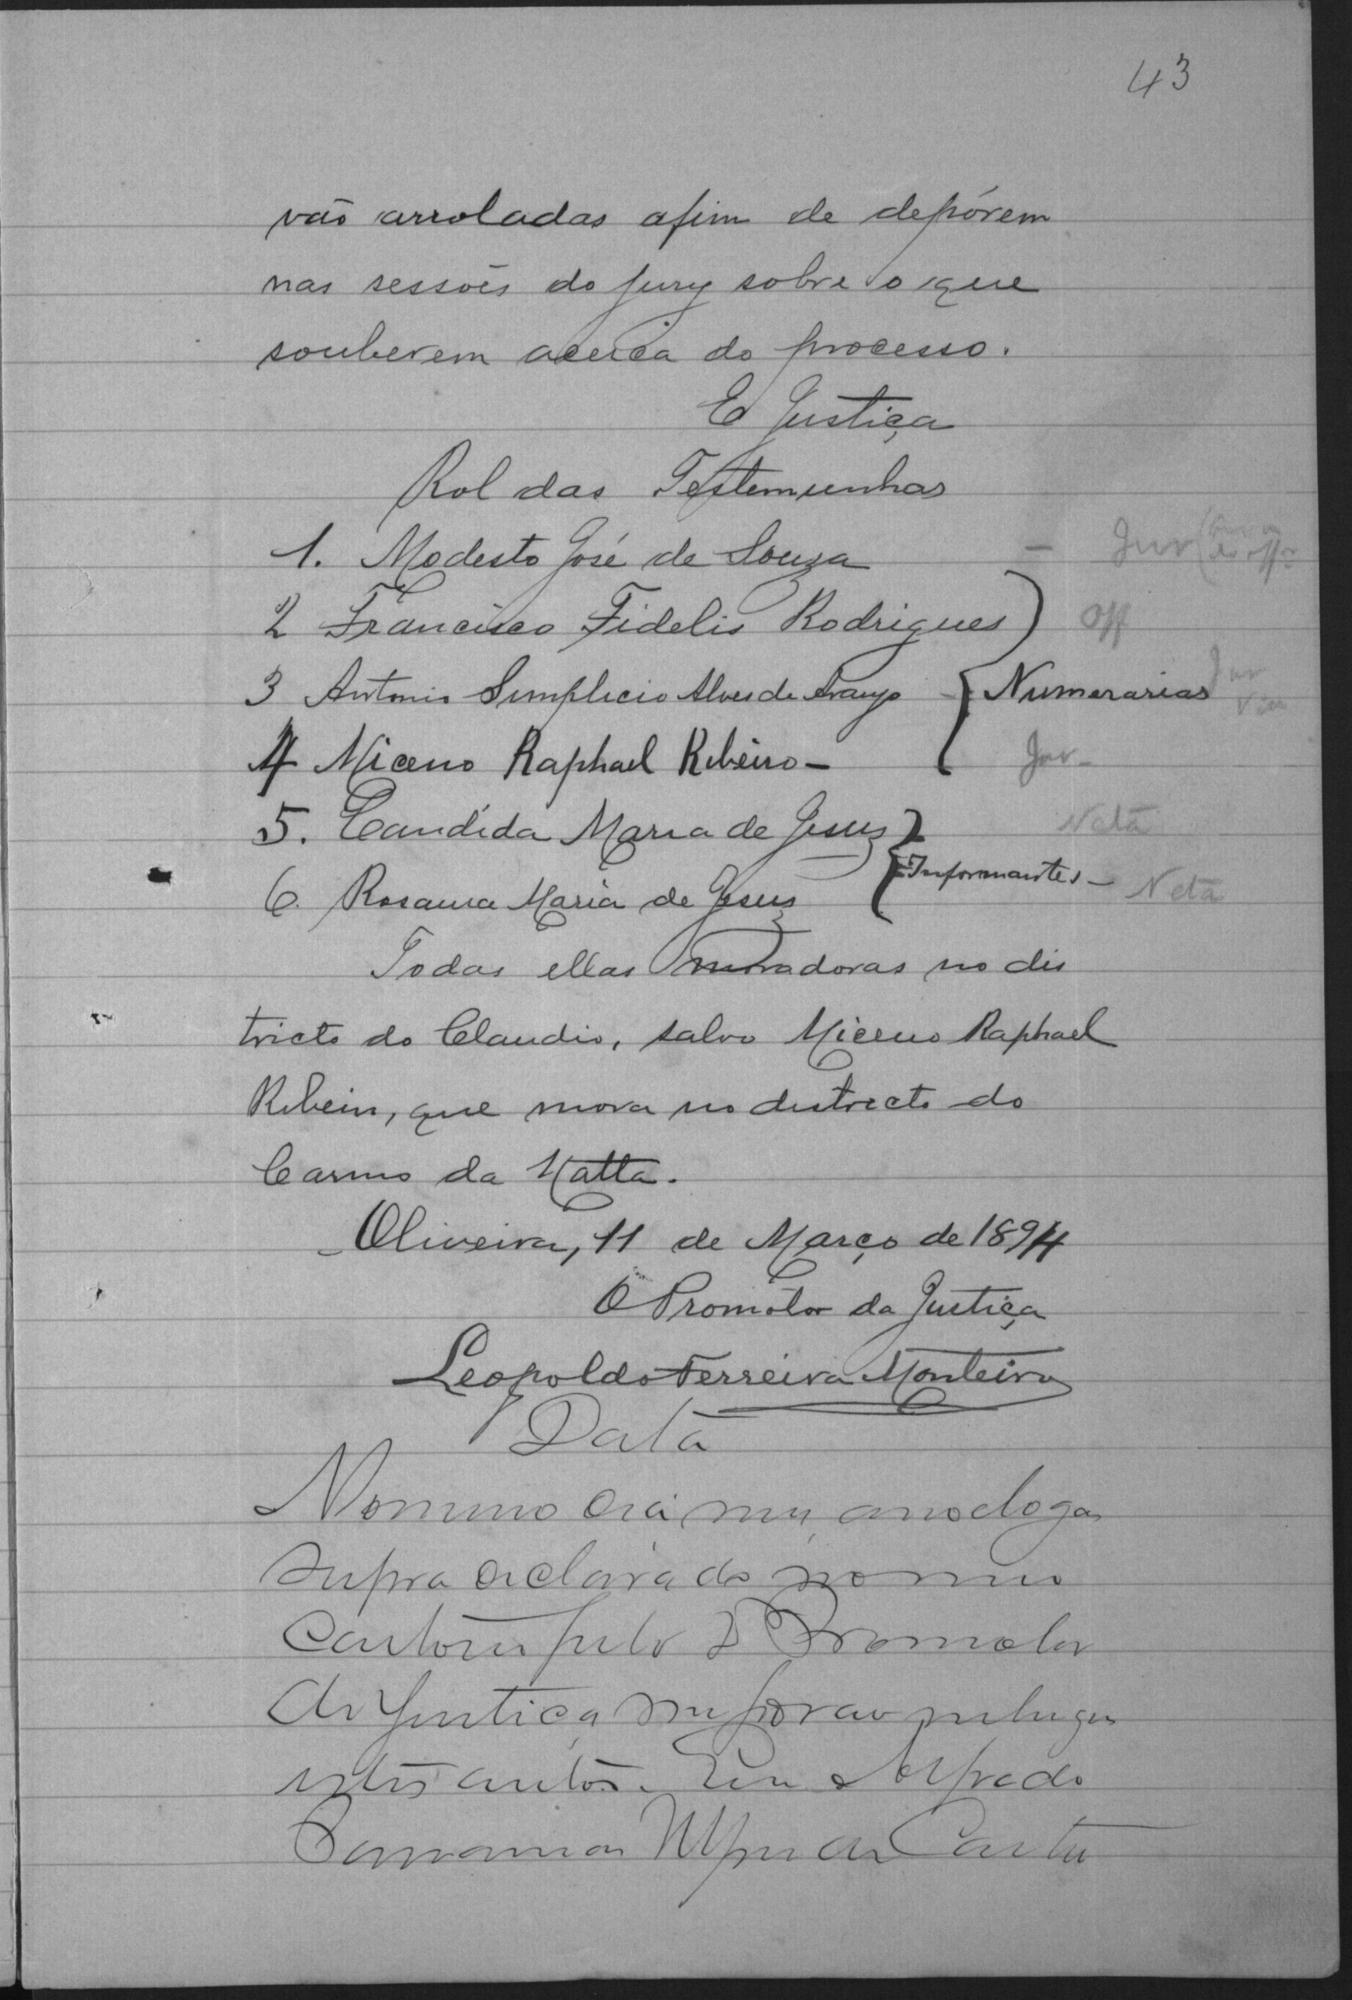 43
vão arroladas afim de depôrem
nas sessões do jury sobre o que
souberem acerca do processo.
E Justiça
Rol das Testemunhas
1. Modesto José de Souza - Jur
2 Francisco Fidelis Rodrigues Off
3 Antonio Simplicio Alves de Araujo - Numerarias Jur
4 Miceno Raphael Ribeiro - Jur -
5. Candida Maria de Jesus Netā
6. Rosaura Maria de Jesus Informantes - Netā
Todas ellas moradoras no dis
tricto do Claudio, salvo Miceno Raphael
Ribeiro, que mora no districto do
Carmo da Matta.
Oliveira, 11 de Março de 1894
O Promotor da Justiça
Leopoldo Ferreira Monteiro
Data
No mesmo dia mez, anno e logar
supra declarado no meu
Cartorio pelo D Promotor
de Justiça me forão entregues
estes autos. Eu Alfredo
da Costa